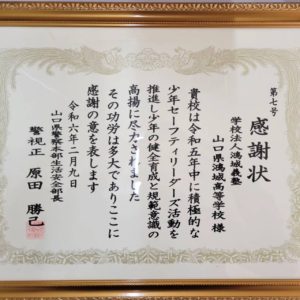 第七号
感謝状
学校法人鴻城義塾
山口県鴻城高等学校 様
貴校は令和五年中に積極的な
少年セーフティリーダーズ活動を
推進し少年の健全育成と規範意識の
高揚に尽力されました
その功労は多大でありここに
感謝の意を表します
令和六年二月九日
山口県警察本部生活安全部長
警視正 原田 勝己